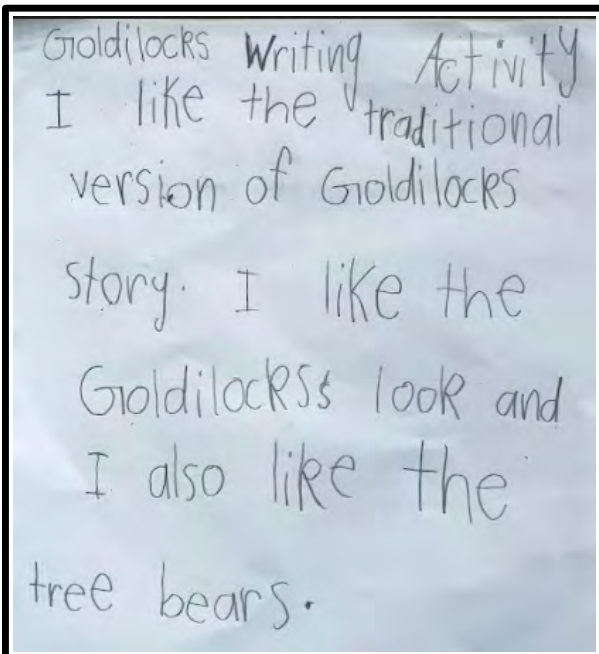 Goldilocks Writing Activity
I like the traditional
version of Goldilocks
story. I like the
Goldilockss look and
I also like the
tree bears.